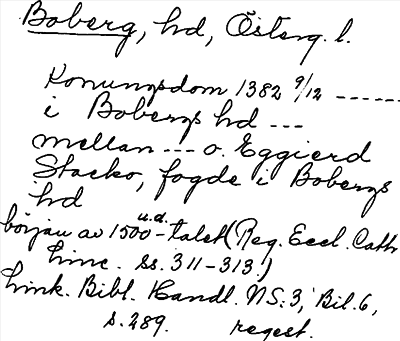 Boberg, hd, Österg. l.
Konungsdom 1382 9/12 -----
i Bobergs hd ---
mellan --- o. Eggierd
Stacko, fogde i Bobergs
hd
u.d.
början av 1500-talet (Reg. Eccl. Cath.
Linc. ss. 311-313.)
Link. Bibl. Handl. NS:3, Bil. 6,
s. 289. regest.